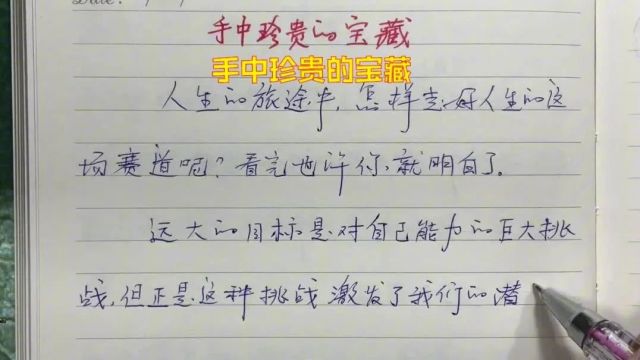 手中珍贵的宝藏
手中珍贵的宝藏
人生的旅途中,怎样走好人生的这
场赛道呢?看完也许你就明白了。
远大的目标是对自己能力的巨大挑
战,但正是这种挑战激发了我们的潜